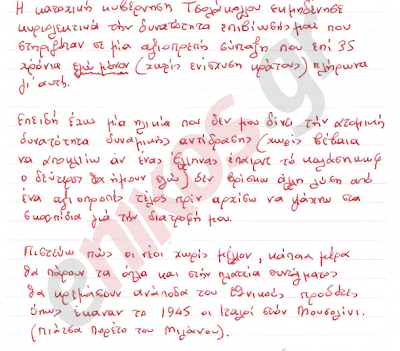 Η κατοχική κυβέρνηση Τσολάκογλου εκμηδένησε
κυριολεκτικά την δυνατότητα επιβίωσής μου που
στηριζόταν σε μία αξιοπρεπή σύνταξη που επί 35
χρόνια εγώ μόνον (χωρίς ενίσχυση κράτους) πλήρωνα
γι' αυτή.
Επειδή έχω μία ηλικία που δεν μου δίνει την ατομική
δυνατότητα δυναμικής αντίδρασης (χωρίς βέβαια
να αποκλείω αν ένας Έλληνας έπαιρνε το καλάσνικωφ
ο δεύτερος θα ήμουν εγώ) δεν βρίσκω άλλη λύση από
ένα αξιοπρεπές τέλος πριν αρχίσω να ψάχνω στα
σκουπίδια για την διατροφή μου.
Πιστεύω πως οι νέοι χωρίς μέλλον, κάποια μέρα
θα πάρουν τα όπλα και στην πλατεία συντάγματος
θα κρεμάσουν ανάποδα τους εθνικούς προδότες
όπως έκαναν το 1945 οι Ιταλοί στον Μουσολίνι.
(Πιάτσα Πορέτο του Μιλάνου).
enikos.gr